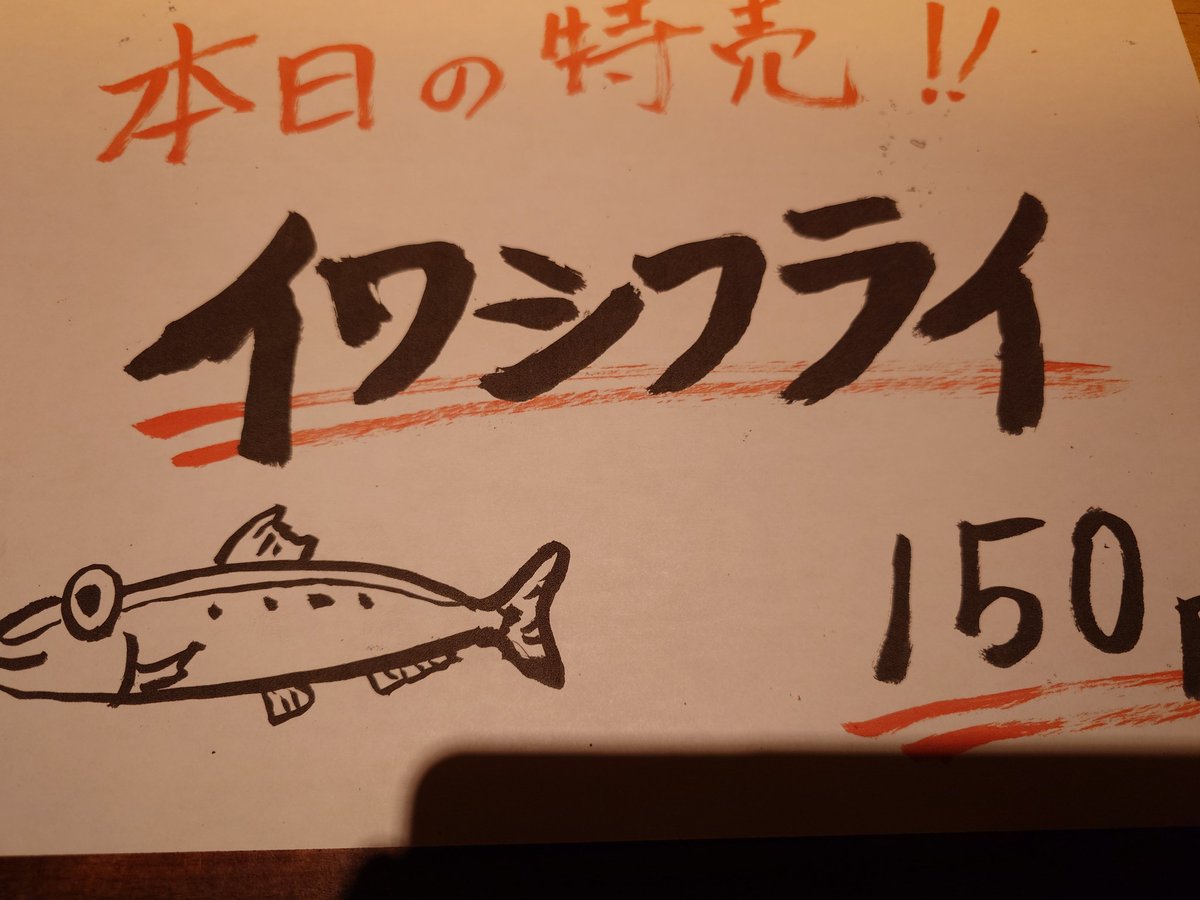 本日の特売!!
イワシフライ
150